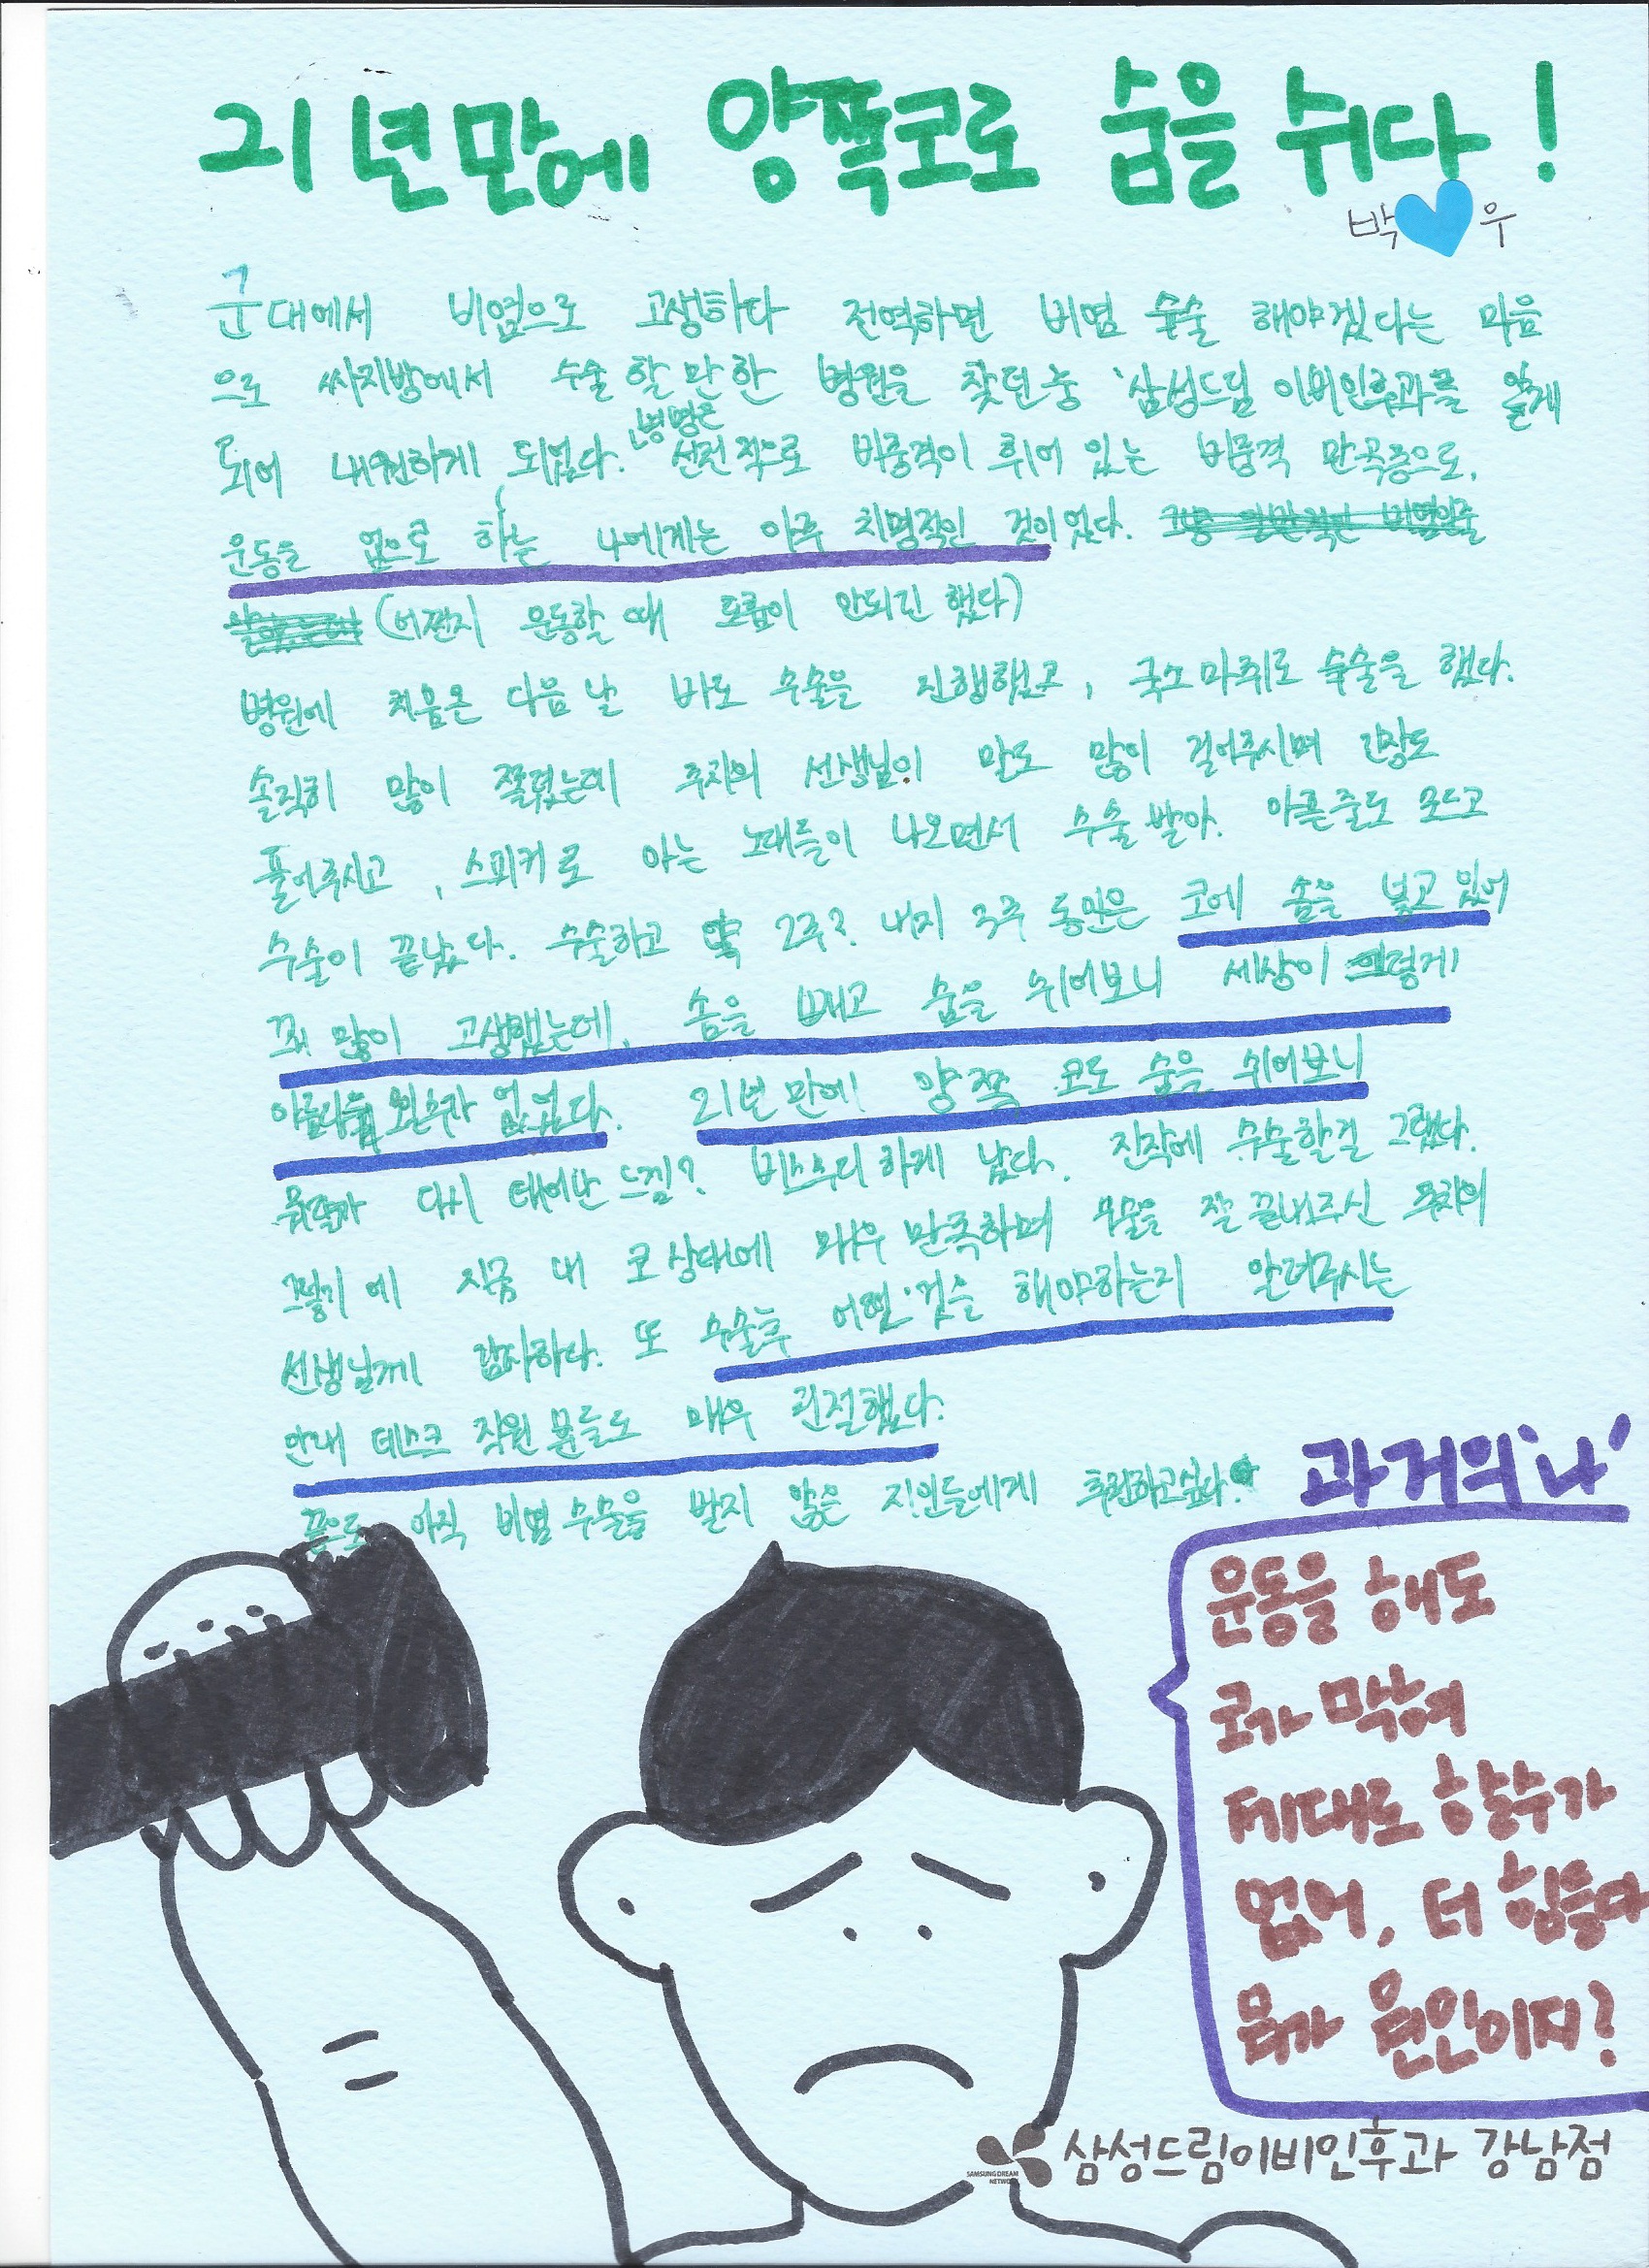 21년만에 양쪽코로 숨을 쉬다!
박 우
군대에서 비염으로 고생하다 전역하면 비염 수술 해야겠다는 마음
으로 싸지방에서 수술 할 만한 병원을 찾던 중 '삼성드림 이비인후과'를 알게
되어 내원하게 되었다. 병명은 선천적으로 비중격이 휘어 있는 비중격 만곡증으로,
운동을 업으로 하는 나에게는 아주 치명적인 것이었다. 그냥 일반적인 비염인줄
(어쩐지 운동할 때 호흡이 안되긴 했다)
병원에 처음온 다음 날 바로 수술을 진행했고, 국소마취로 수술을 했다.
솔직히 많이 쫄렸는데 주치의 선생님이 말도 많이 걸어주시며 긴장도
풀어주시고, 스피커로 아는 노래들이 나오면서 수술 받아. 아픈줄도 모르고
수술이 끝났다. 수술하고 약 2주? 내지 3주 동안은 코에 솜을 넣고 있어
꽤 많이 고생했는데, 솜을 빼고 숨을 쉬어보니 세상이 그렇게
아름다울 수가 없었다. 21년 만에 양쪽 코로 숨을 쉬어보니
뭐랄까 다시 태어난 느낌? 비스무리 하게 났다. 진작에 수술할걸 그랬다.
그렇기에 지금 내 코 상태에 매우 만족하며 수술을 잘 끝내주신 주치의
선생님께 감사하다. 또 수술후 어떤 것을 해야하는지 알려주시는
안내 데스크 직원 분들도 매우 친절했다.
끝으로 아직 비염 수술을 받지 않은 지인들에게 추천하고싶다.
과거의 '나'
운동을 해도
코가 막혀
제대로 할수가
없어, 더 힘들다
뭐가 원인이지?
SAMSUNG DREAM NETWORK
삼성드림이비인후과 강남점